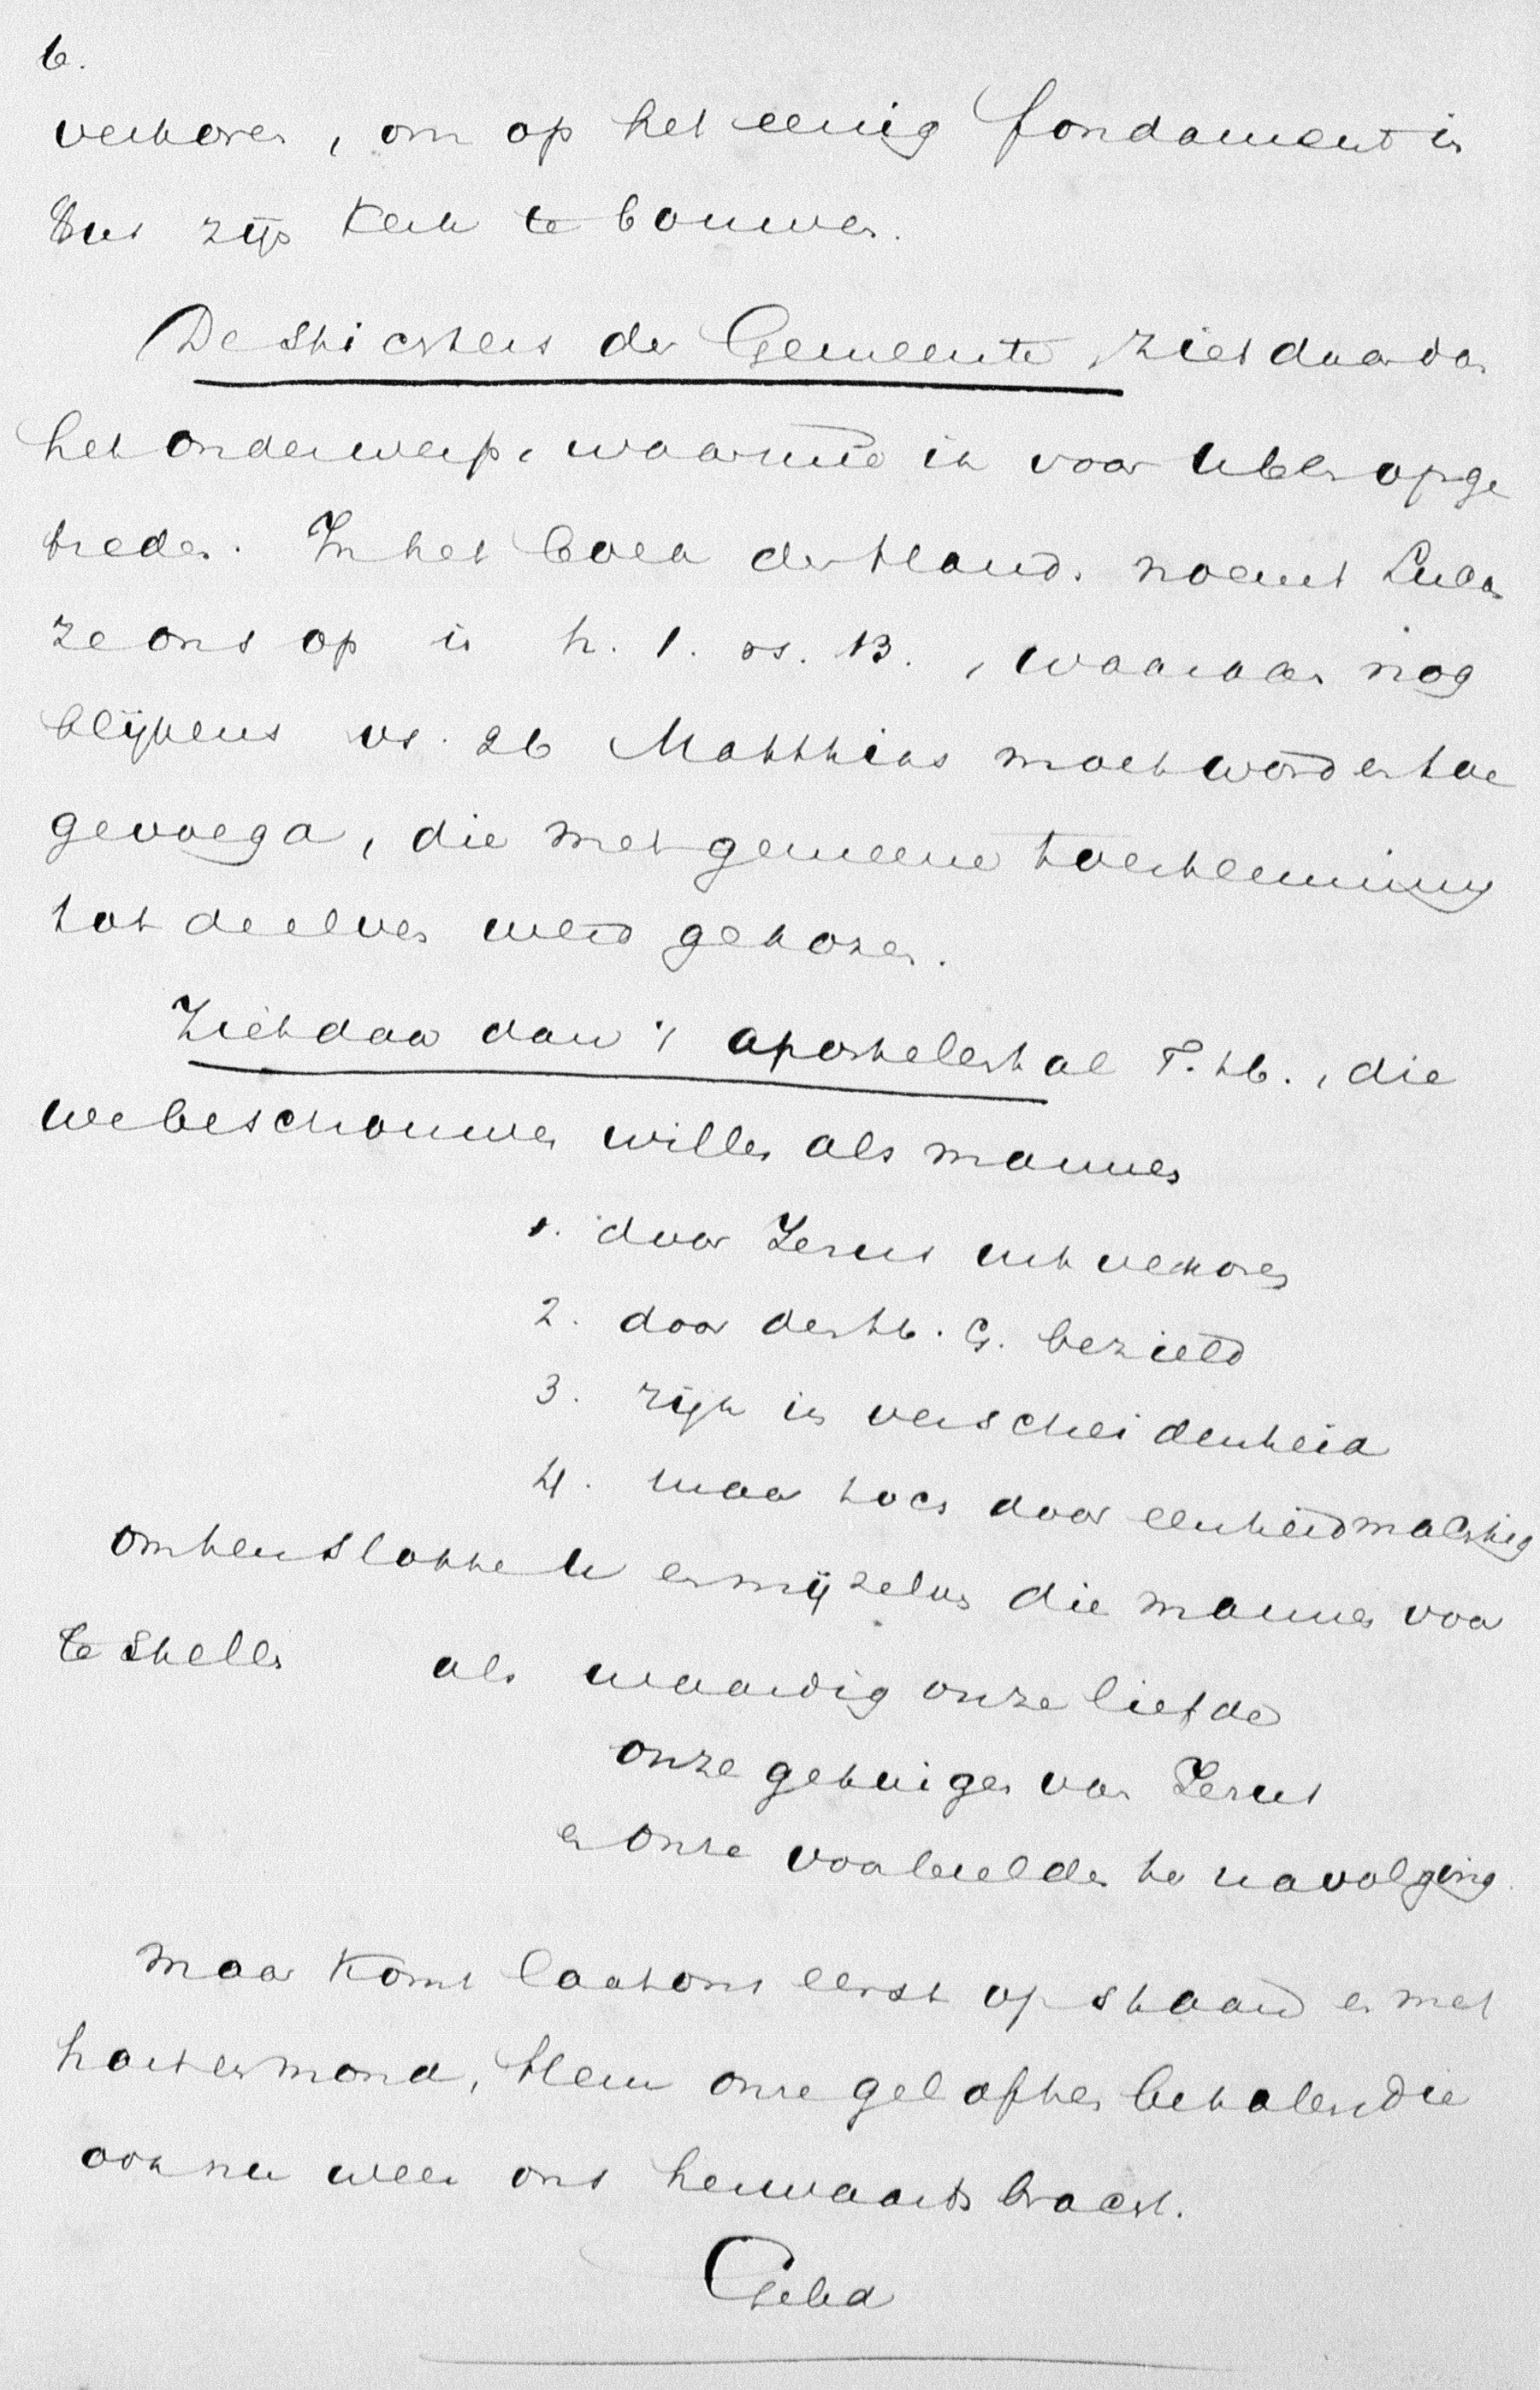 6.
verkoren, om op het eenig fondament in
zijn Kerk te bouwen.
De stichters der Gemeente, ziet daar dan
het onderwerp, waarmede ik voor U ben opge
treden. In het boek der Hand. noemt Lucas
ze ons op in h. 1. vs. 13., waaraan nog
blijkens vs. 26 Matthias moet worden toe
gevoegd, die met gemeene toestemming
tot de elven werd gekozen.
Ziet daar dan 't apostelental T. H., die
we beschouwen willen als mannen
1. door Jezus uitverkoren
2. door den H. G. bezield
3. rijk in verscheidenheid
4. maar toch door eenheid machtig
om ten slotte U en mij zelven die mannen voor
te stellen als waardig onze liefde
onze getuigen van Jezus
en onze voorbeelden ter navolging.
Maar komt laat ons eerst opstaand en met
hart en mond, Hem onze geloften betalen die
ook nu weer ons herwaarts bracht.
Gebed